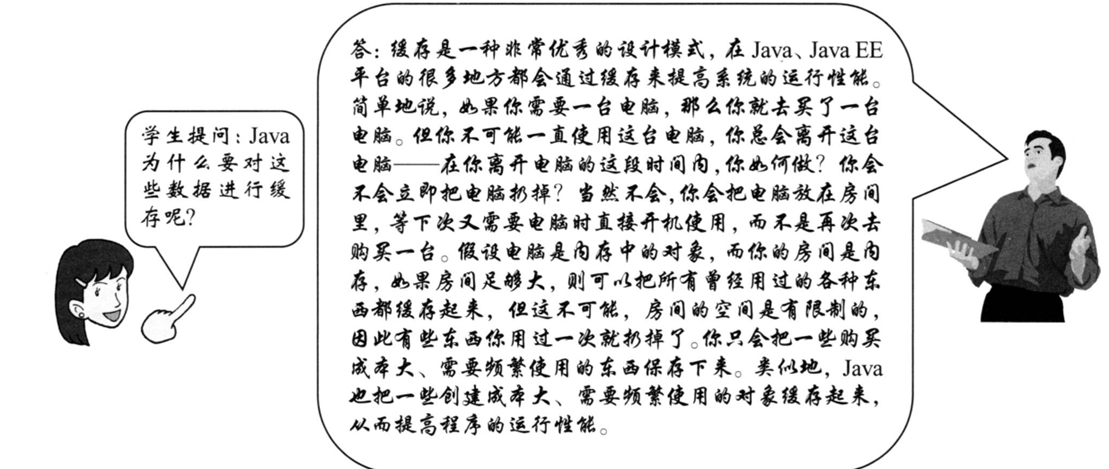 学生提问：Java
为什么要对这
些数据进行缓
存呢？
答：缓存是一种非常优秀的设计模式，在 Java、Java EE
平台的很多地方都会通过缓存来提高系统的运行性能。
简单地说，如果你需要一台电脑，那么你就去买了一台
电脑。但你不可能一直使用这台电脑，你总会离开这台
电脑——在你离开电脑的这段时间内，你如何做？你会
不会立即把电脑扔掉？当然不会，你会把电脑放在房间
里，等下次又需要电脑时直接开机使用，而不是再次去
购买一台。假设电脑是内存中的对象，而你的房间是内
存，如果房间足够大，则可以把所有曾经用过的各种东
西都缓存起来，但这不可能，房间的空间是有限制的，
因此有些东西你用过一次就扔掉了。你只会把一些购买
成本大、需要频繁使用的东西保存下来。类似地，Java
也把一些创建成本大、需要频繁使用的对象缓存起来，
从而提高程序的运行性能。